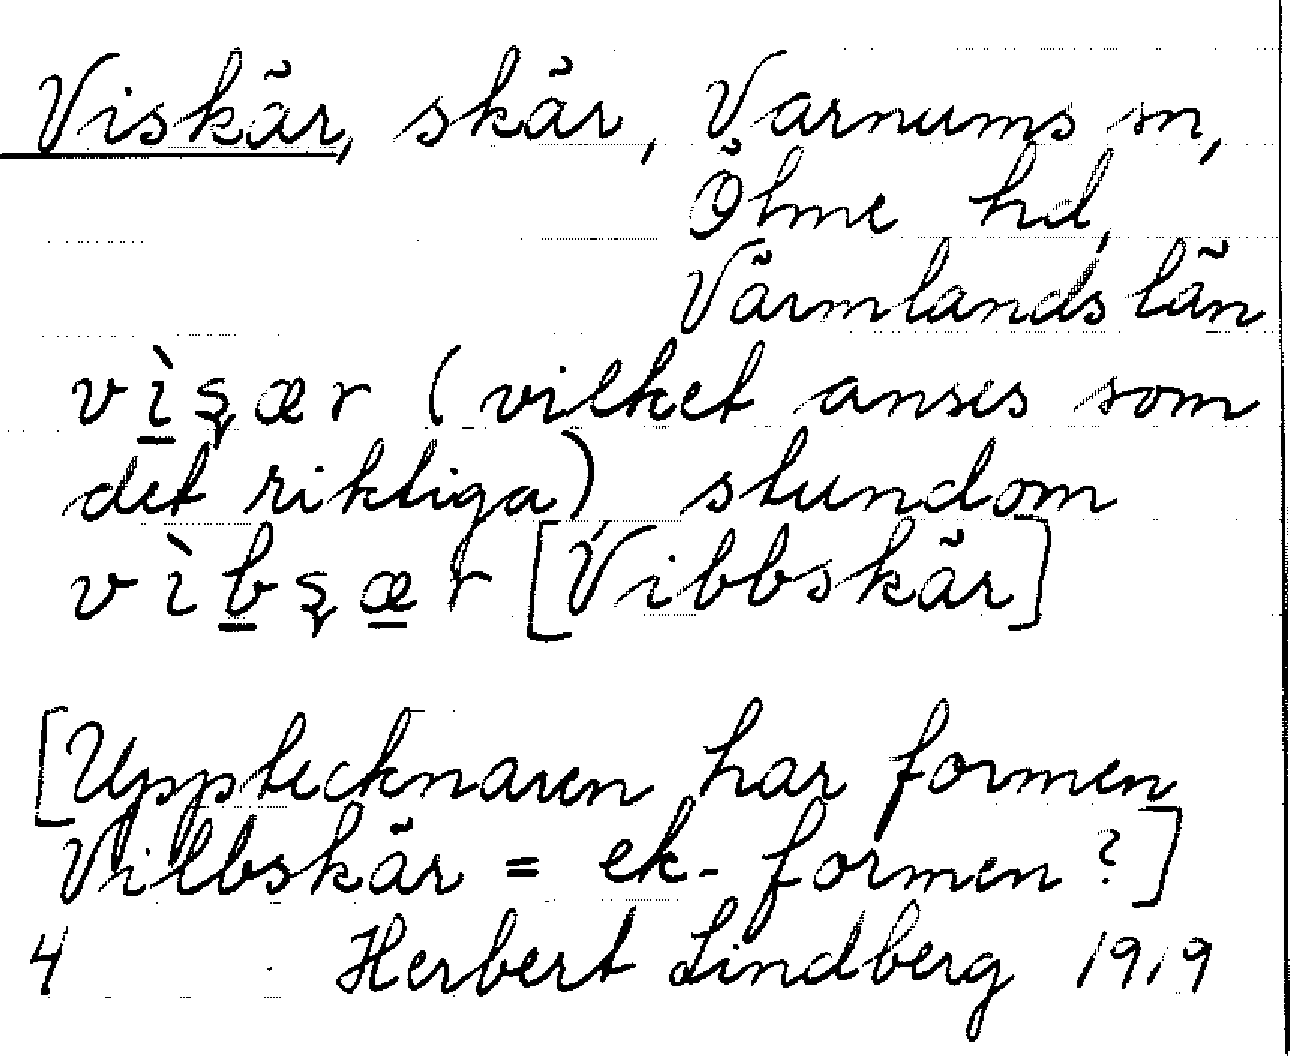 Viskär, skär, Varnums sn,
Ölme hd,
Värmlands län
vìʂær (vilket anses som
det riktiga) stundom
vìbʂær [Vibbskär]
[Upptecknaren har formen
Vilbskär = ek-formen ?]
4 Herbert Lindberg 1919